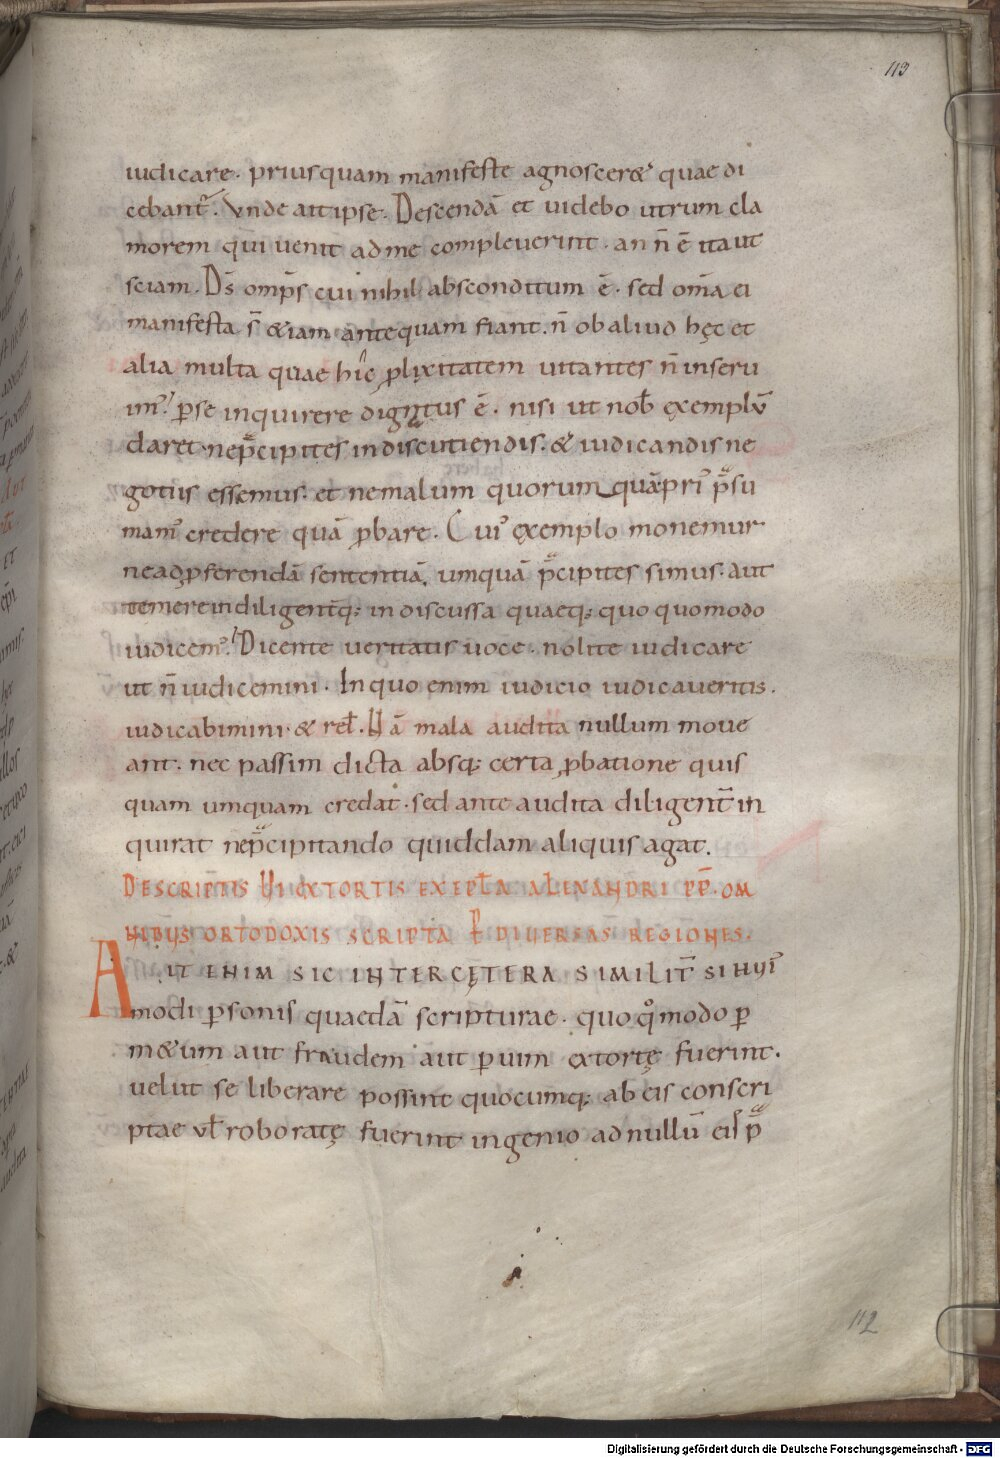 113
iudicare. priusquam manifeste agnoscer&́ quae di
cebant᷑. Vnde ait ipse. Descendā et uidebo utrum cla
morem qui uenit ad me compleuerint. an n̄ ē ita ut
sciam. Ds̄ omp̄s cui nihil absconditum ē. sed om̄a ei
manifesta s̄ &iam antequam fiant. n̄ ob aliud hęc et
alia multa quae hic ꝓlixitatem uitantes n̄ inserui
im᷒. ꝑ se inquirere dignatus ē. nisi ut nob̄ exemplū
daret. ne p̄cipites in discutiendis. & iudicandis ne
gotiis essemus. et ne malum quorumquā pri᷒ p̄su
mam᷒ credere quā ꝓbare. Cui᷒ exemplo monemur
ne ad ꝓferendā sententiā. umquā p̄cipites simus. aut
temere indiligent̄q; indiscussa quaeq; quoquo modo
iudicem᷒. Dicente ueritatis uoce. nolite iudicare
ut n̄ iudicemini. In quo enim iudicio iudicaueritis.
iudicabimini. & rel̄. Nā mala audita nullum moue
ant. nec passim dicta absq; certa ꝓbatione quis
quam umquam credat. sed ante audita diligent̄ in
quirat ne p̄cipitando quiddam aliquis agat.
DE SCRIPTIS UI EXTORTIS EX EPĽA ALEXANDRI PP̄. OM
NIBUS ORTODOXIS SCRIPTA P̄ DIUERSAS REGIONES.
AIT ENIM SIC INTER CĘTERA SIMILIT̄ SI HUI᷒
modi ꝑsonis quaedā scripturae. quoq̊modo ꝑ
m&um aut fraudem aut ꝑ uim extortę fuerint.
uel ut se liberare possint quocumq; ab eis conscri
ptae uł roboratę fuerint ingenio ad nullū eis p̄
112
Digitalisierung gefördert durch die Deutsche Forschungsgemeinschaft - DFG